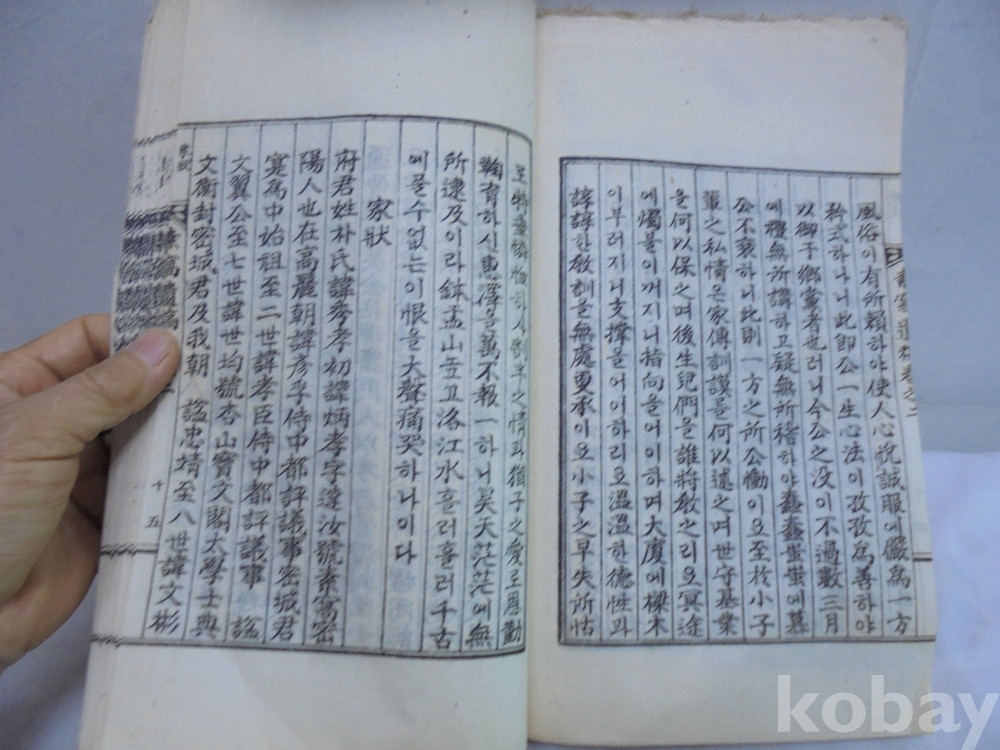 風俗이有所賴하야使人心悅誠服에儼爲一方
矜式하나니此卽公一生心法이孜孜爲善하야
以御于鄕黨者也러니今公之沒이不過數三月
에禮無所講하고疑無所稽하야蠢蠢蚩蚩에慕
公不衰하니此則一方之所公慟이요至於小子
輩之私情은家傳訓謨를何以述之며世守基業
을何以保之며後生兒們을誰將敎之리요冥途
에燭을이꺼지니指向을어이하며大廈에樑木
이부러지니支撑을어이하리요溫溫한德性과
諄諄한敎訓을無處更承이요小子之早失所怙
로特垂憐恤하사之情과猶子之愛로恩勤
鞠育하신惠澤을萬不報一하니昊天茫茫에無
所逮及이라鉢盂山높고洛江水흘러흘러千古
에끝수없는이恨을大聲痛哭하나이다
家狀
府君姓朴氏諱秀孝初諱炳孝字達汝號素窩密
陽人也在高麗朝諱彦孚侍中都評議事密城君
寔爲中始祖至二世諱孝臣侍中都評議事 諡
文翼公至七世諱世均號杏山寶文閣大學士典
文衡封密城君及我朝 諡忠靖至八世諱文彬
家狀
十五
kobay